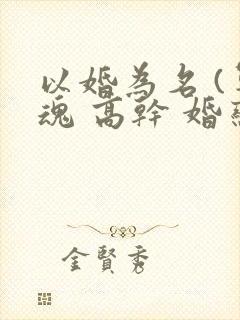 以婚為名(
魂 高幹 婚
金賢秀